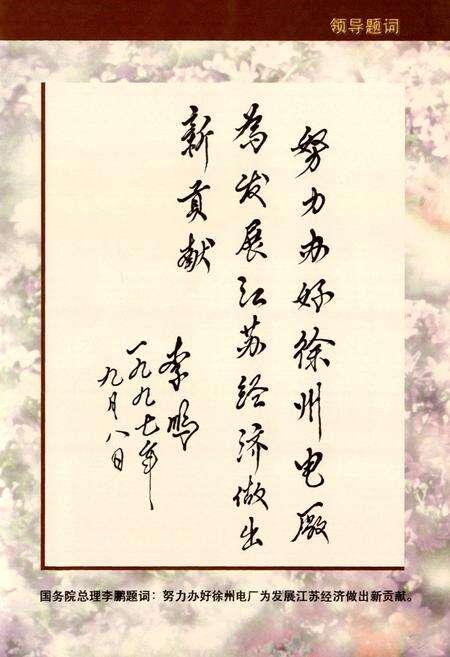 领导题词
努力办好徐州电厰
為发展江苏经济做出
新贡献
李鹏
一九九七年
九月八日
国务院总理李鹏题词：努力办好徐州电厂为发展江苏经济做出新贡献。